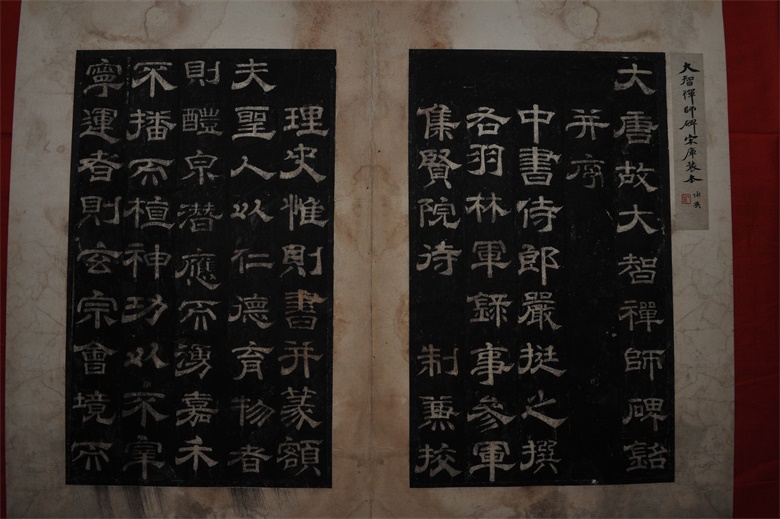 大智禪師碑宋庫裝本
大唐故大智禪師碑銘
并序
中書侍郎嚴挺之撰
右羽林軍錄事參軍
集賢院待制兼挍
理史惟則書并篆額
夫聖人以仁德育物者
則醴泉潛應而湧嘉禾
不播而植神功以不宰
寧運者則玄宗會境而